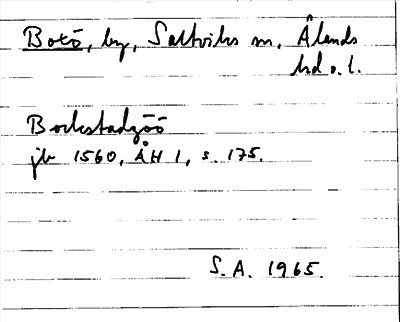 Botö, by, Saltviks sn, Ålands
hd o. l.
Bockstadzöö
jb 1560, ÅH 1, s. 175.
S. A. 1965.